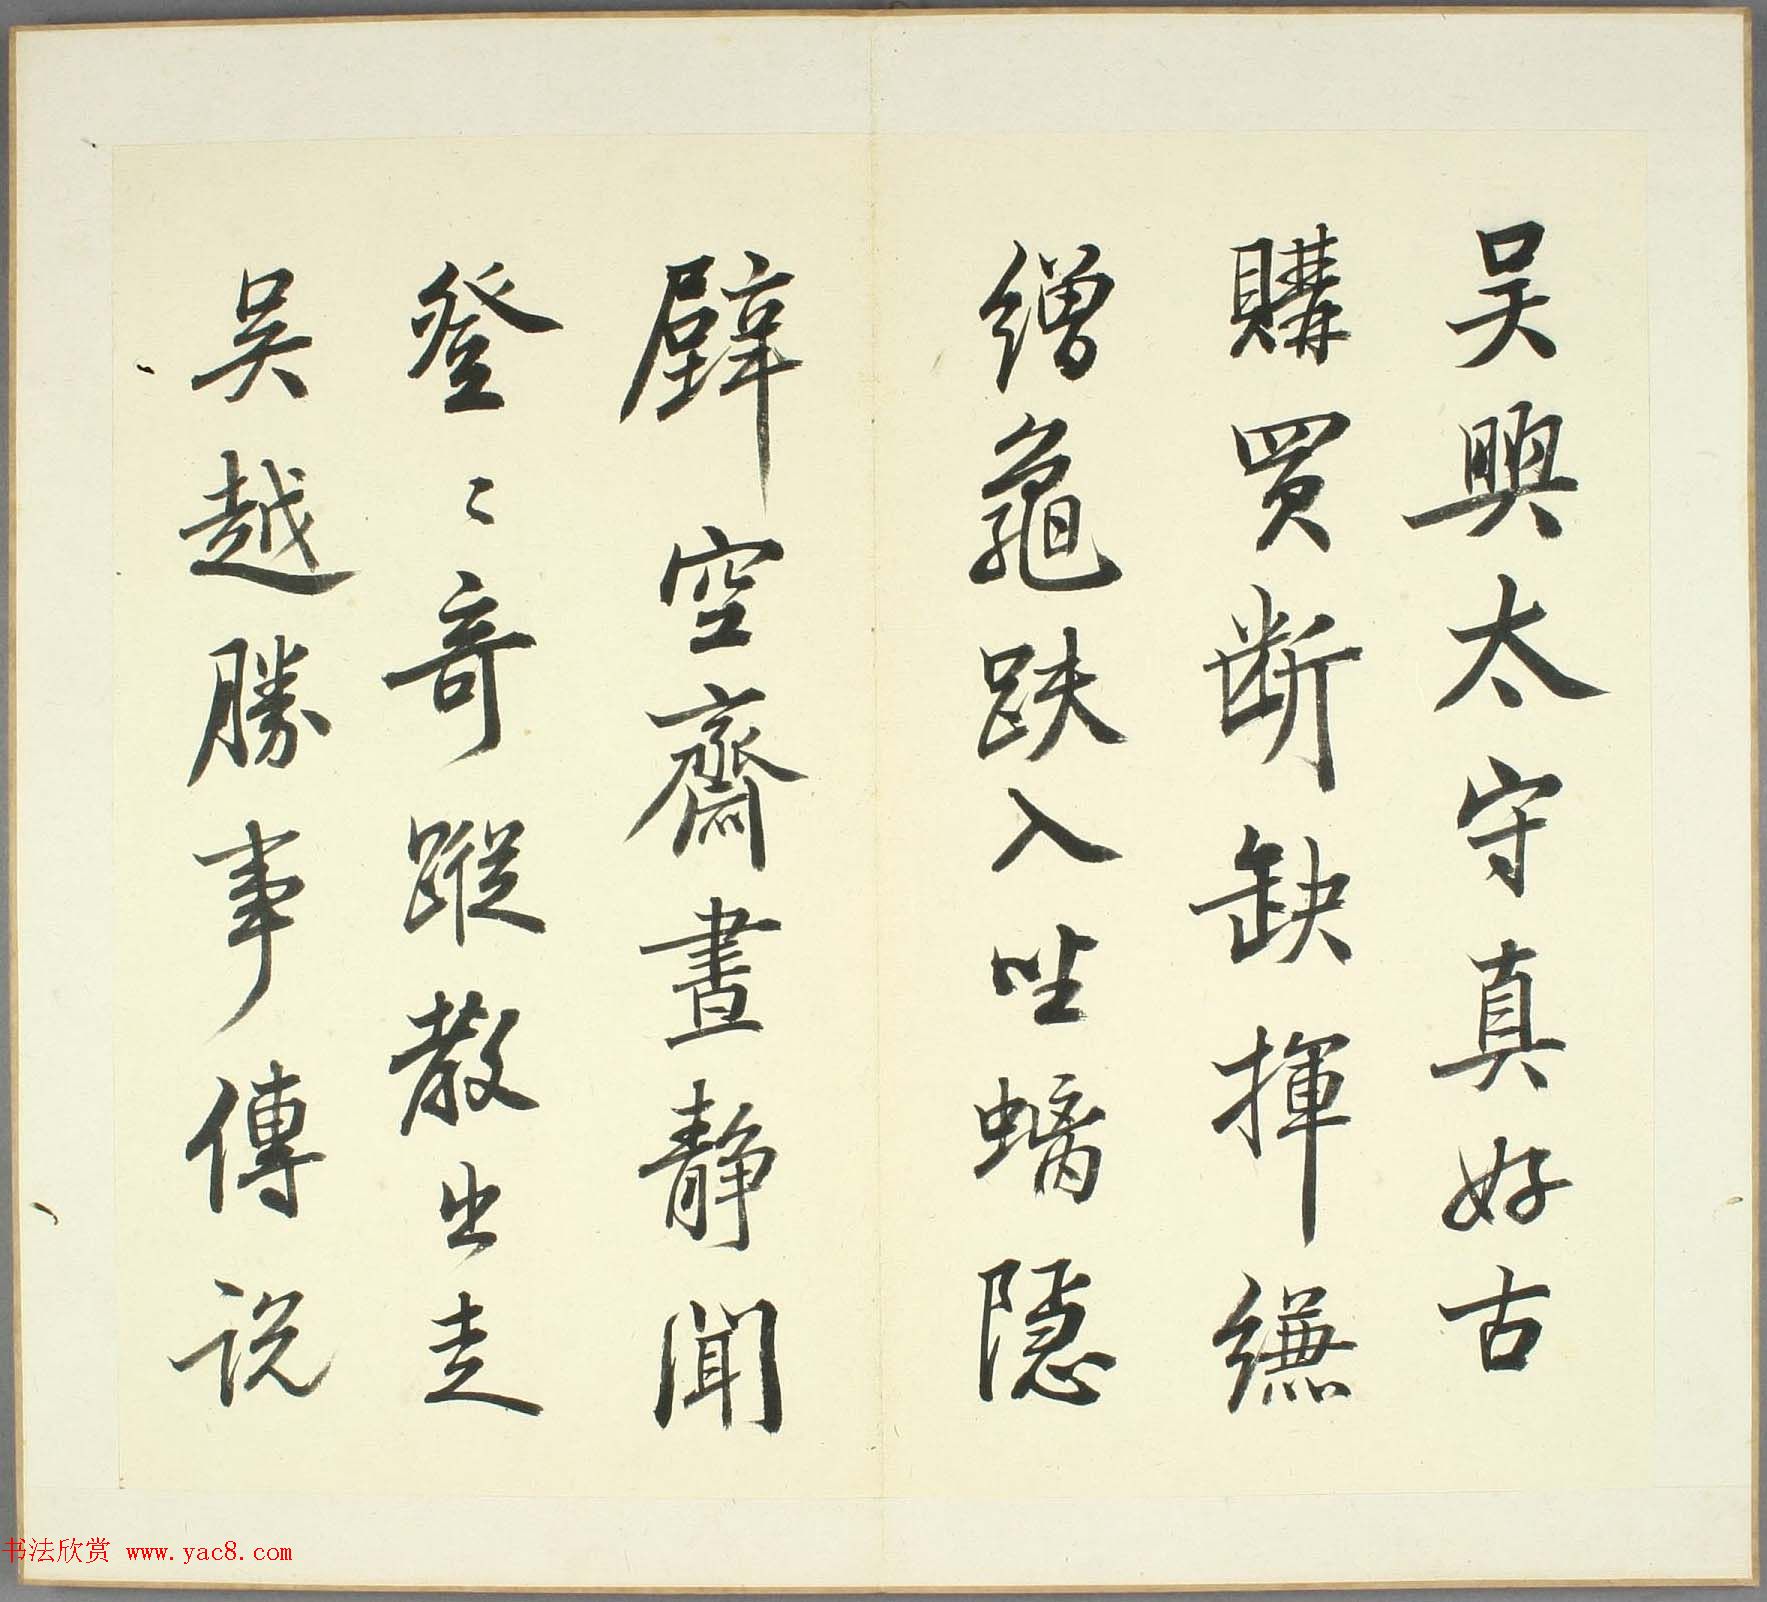 吴興太守真好古
購買斷缺揮縑
繒龜趺入坐螭隱
壁空齋晝静聞
登〻奇蹤散出走
吴越勝事傳說
书法欣赏 www.yac8.com